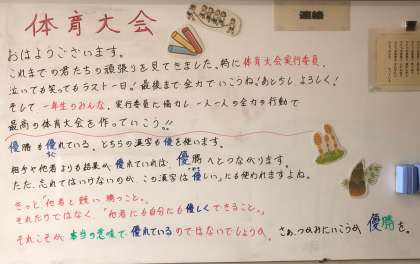 体育大会
連絡
おはようございます。
これまでの君たちの頑張りを見てきました。特に体育大会実行委員、
泣いても笑ってもラスト一日！最後まで全力でいこうね！あとすこしよろしく！
そして一年生のみんな、実行委員に協力し一人一人の全力の行動で
最高の体育大会を作っていこう!!
優勝も優れている。どちらの漢字も優を使います。
相手や他者よりも結果が優れていれば、優勝へとつながります。
ただ、忘れてはいけないのが、この漢字は優しい、にも使われますよね。
きっと「他者と競い勝つこと。」
それだけではなく、「他者にも自分にも優しくできること。」
それこそが本当の意味で優れているのではないでしょうか。
さぁ、つかみにいこうか優勝を。